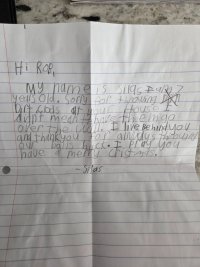 Hi Rae,
My name is Silas, I am 7
years old. Sorry for throwing
Dirt Clods at your House I
didn't mean to have them go
over the wall. I live behind you
and thank you for always throwing
our balls back. I Pray you
have a merry Cristmis.
~Silas